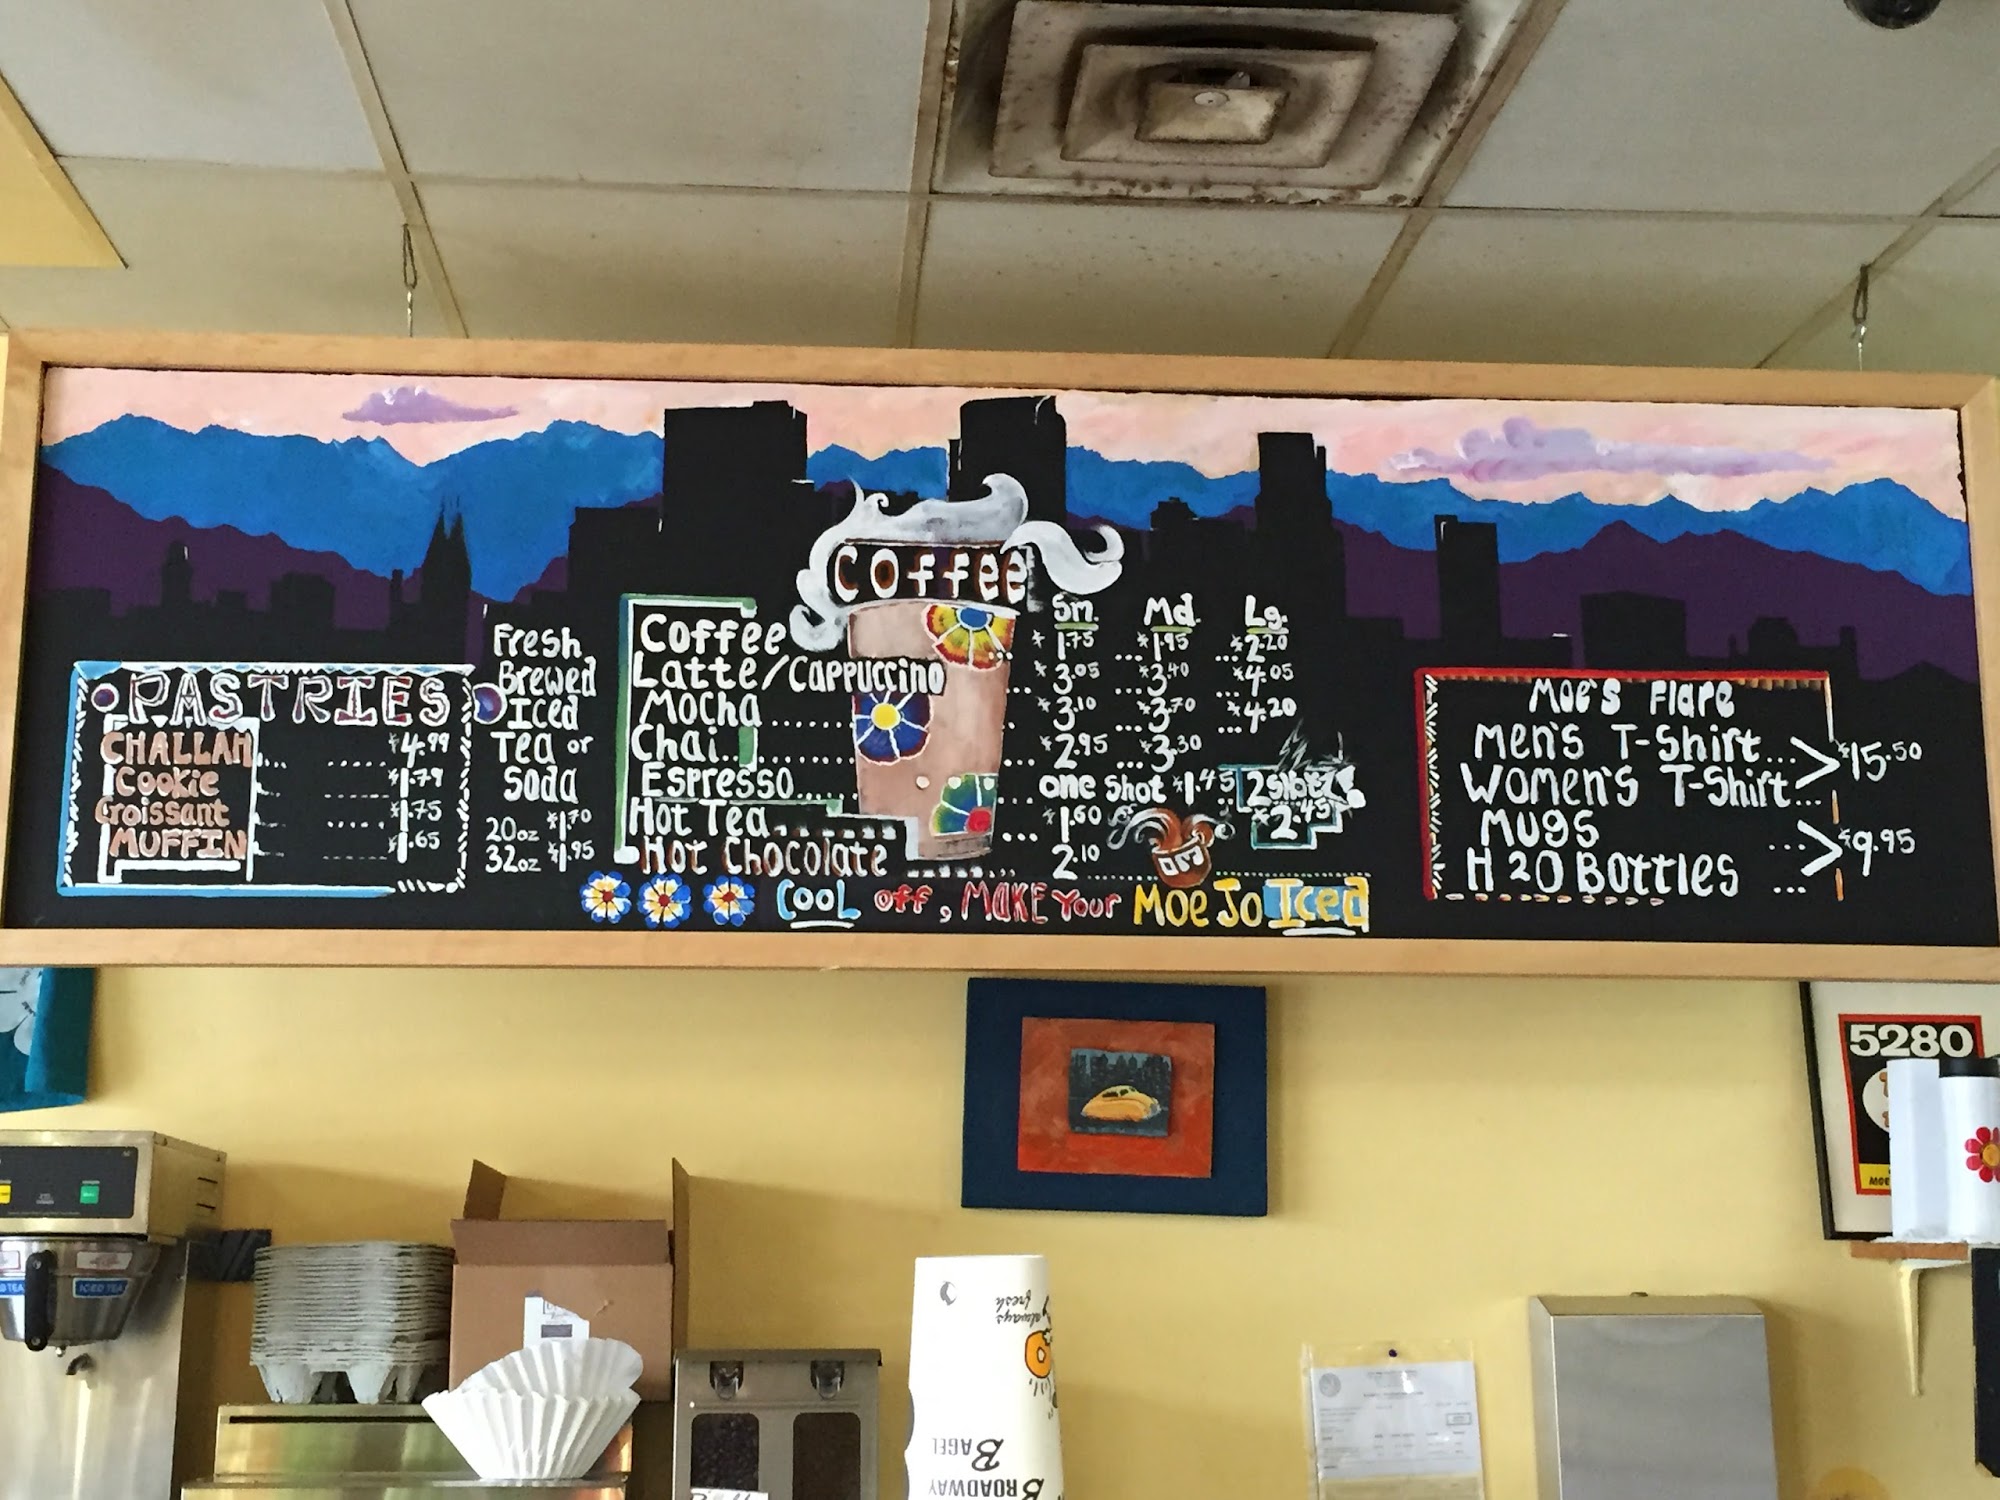 PASTRIES
CHALLAH ... ...... $4.99
Cookie ...... $1.79
Croissant ...... $1.75
MUFFIN ...... $1.65
Fresh
Brewed
Iced
Tea or
Soda
20oz $1.70
32oz $1.95
coffee
Sm. Md. Lg.
Coffee ... $1.75 ... $1.95 ... $2.20
Latte/Cappuccino ... $3.05 ... $3.40 ... $4.05
Mocha ...... $3.10 ... $3.70 ... $4.20
Chai ...... $2.95 ... $3.30
Espresso ...... one Shot $1.45 2 Shots $2.45
Hot Tea ...... $1.60
Hot Chocolate ...... 2.10
Cool off, MAKE Your MOE JO Iced
Moe's Flare
Men's T-Shirt...
Women's T-Shirt... > $15.50
Mugs ...
H20 Bottles ... > $9.95
5280
MOE
ICED TEA
always
fresh
BROADWAY
BAGEL